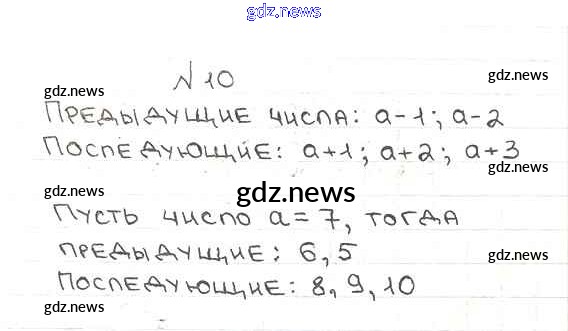 gdz.news
№10
gdz.news
gdz.news
Предыдущие числа: a-1; a-2
Последующие: a+1; a+2; a+3
gdz.news
gdz.news
gdz.news
Пусть число a=7, тогда
предыдущие: 6,5
Последующие: 8,9,10
gdz.news
gdz.news